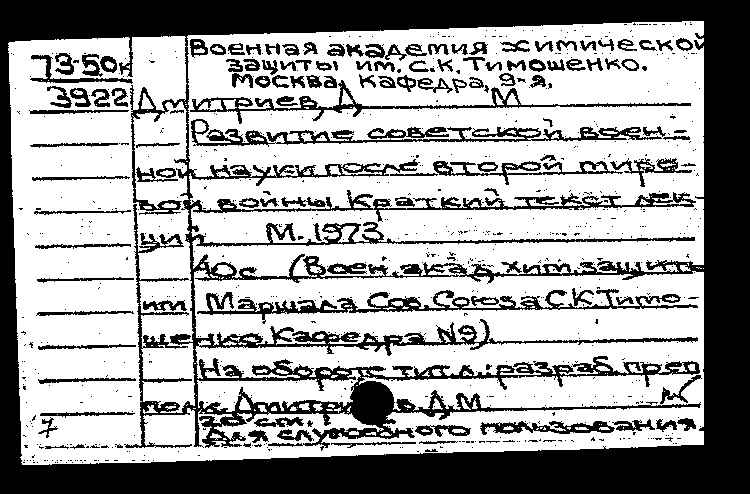 Военная академия химической
73-50к защиты им. С.К. Тимошенко.
Москва, кафедра, 9-я,
3922 Дмитриев, Д М
Развитие советской воен-
ной науки после второй миро-
вой войны. Краткий текст лек-
ций М., 1973.
40с (Воен. акад. хим. защиты
им. Маршала Сов. Союза С.К. Тимо-
шенко. Кафедра №9).
На обороте тит. л.: разраб. преп
полк. Дмитриев Д.М.
20 см.
7 Для служебного пользования.